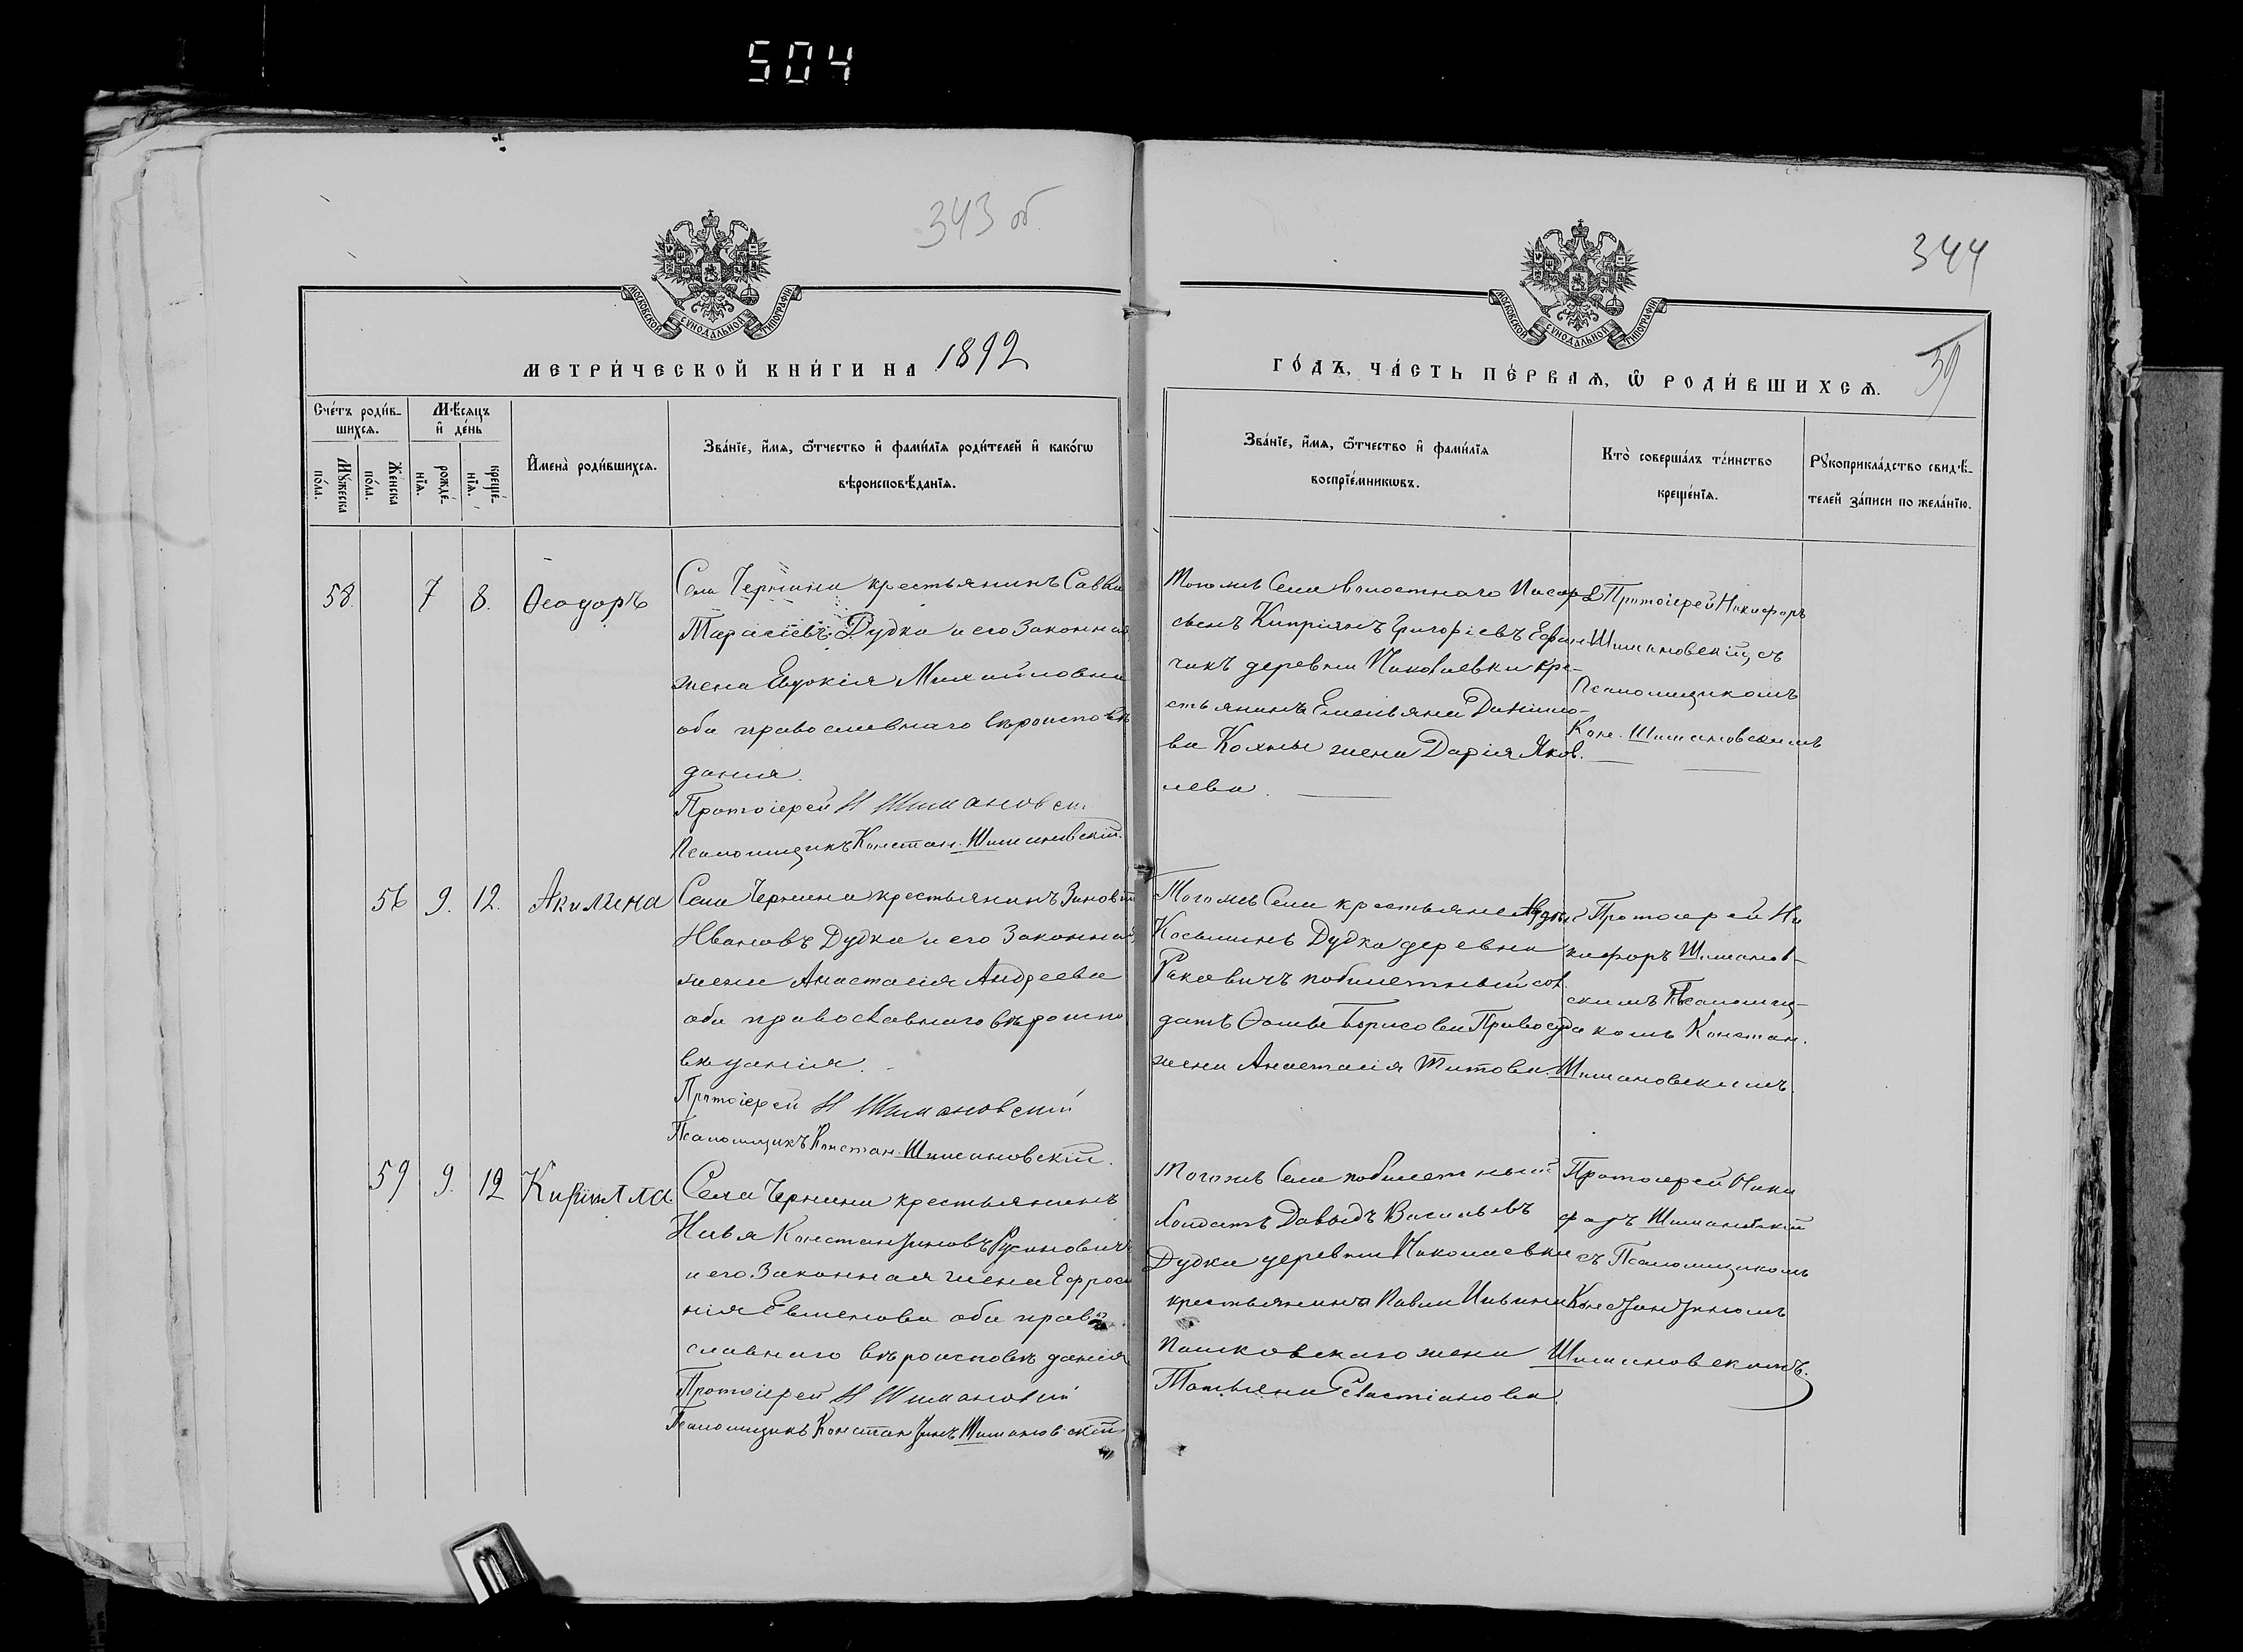 504
343 об
МОСКОВСКОЙ СУНОДАЛЬНОЙ ТИПОГРАФІИ
МЕТРИ́ЧЕСКОЙ КНИ́ГИ НА 1892
Сче́тъ роди́в-
шихсѧ.
Мꙋ́жеска
по́ла.
Же́нска
по́ла.
Мѣ́сѧцъ
и҆ де́нь
рожде́-
нїѧ.
креще́-
нїѧ.
И҆мена̀ роди́вшихсѧ.
Зва́нїе, и҆́мѧ, ѻ҆́тчество и҆ фами́лїѧ роди́телей и҆ како́гѡ
вѣроисповѣ́данїѧ.
58. 7 8. Ѳеодоръ
Села Чернина крестьянинъ Савва
Тарасіевъ Дудка и его законная
жена Евдокія Михайловна
оба православнаго вѣроисповѣ
данія.
Протоіерей Н Шимановскі
Псаломщикъ Констан. Шимановскій.
56 9. 12. Акилина
Села Чернина крестьянинъ Зиновій
Ивановъ Дудка и его законная
жена Анастасія Андреева
оба православнаго вѣроиспо
вѣданія.
Протоіерей Н Шимановскій
Псаломщикъ Констан. Шимановскій.
59 9. 12 Кириллa
Села Чернина крестьянинъ
Илья Константиновъ Русиновичъ
и его законная жена Ефроси
нія Евменова оба право
славнаго вѣроисповѣданія
Протоіерей Н Шимановскій
Псаломщикъ Константинъ Шимановскій
344
39
МОСКОВСКОЙ СУНОДАЛЬНОЙ ТИПОГРАФІИ
ГО́ДЪ, ЧА́СТЬ ПЕ́РВАѦ, Ѡ҆ РОДИ́ВШИХСѦ.
Зва́нїе, и҆́мѧ, ѻ҆́тчество и҆ фами́лїѧ
воспрїе́мникѡвъ.
Кто̀ соверша́лъ та́инство
креще́нїѧ.
Рꙋкоприкла́дство свидѣ́-
телей за́писи по жела́нїю.
Тогожъ Села волостнаго Писар
сынъ Кипріянъ Григоріевъ
чикъ деревни Николаевки кре-
стьянина Емельяна Данило-
ва Кохны жена Дарія Яков.
лева.
Протоіерей Никифоръ
Шимановскій, съ
Псаломщикомъ
Кон. Шимановскимъ
Тогожъ Села крестьянe
Косьминъ Дудка деревни
Раковичъ побилетный сол.
датъ Ѳомы Борисова
жена Анастасія Титова.
Протоіерей Ни
кифоръ Шиманов-
скимъ Псаломщи-
комъ Констан.
Шимановскимъ.
Тогожъ Села побилетный
Солдатъ Давыдъ Васильевъ
Дудка деревни Николаевки
крестьянина Павла Ильина
Пашковскаго жена
Татьяна Севастіанова.
Протоіерей Ники
форъ Шимановскій
съ Псаломщикомъ
Константиномъ
Шимановскимъ.